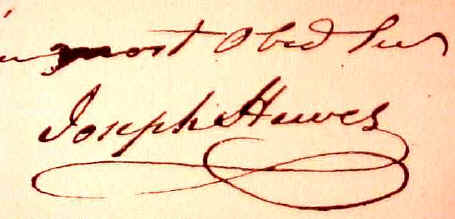 most Obed Ser
Joseph Hewes